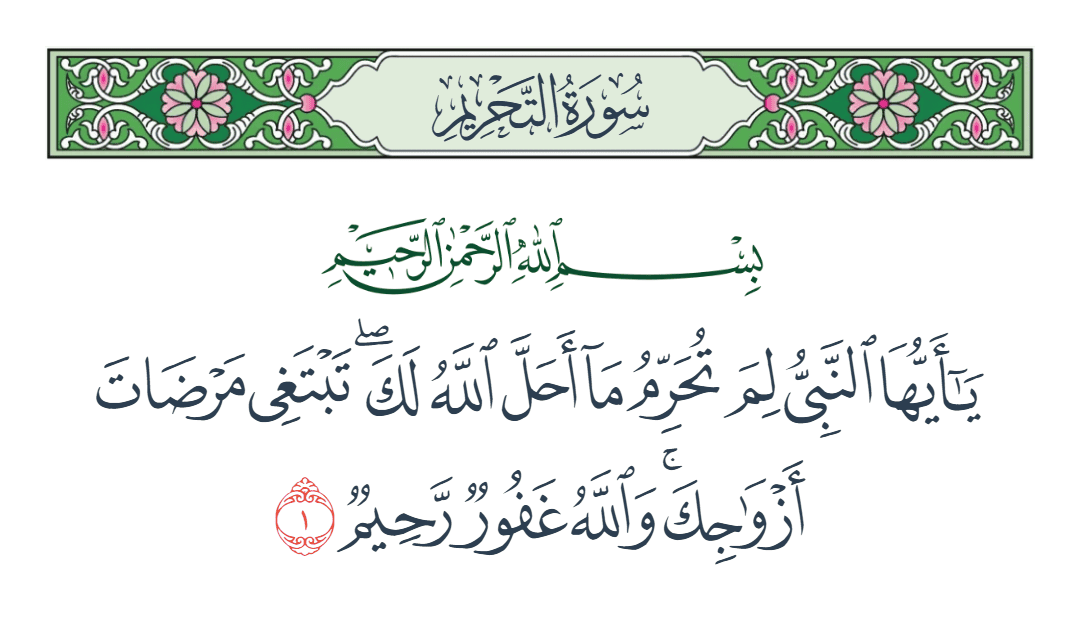 سُورَةُ التَّحْرِيمِ
بِسْمِ ٱللَّهِ ٱلرَّحْمَٰنِ ٱلرَّحِيمِ
يَٰٓأَيُّهَا ٱلنَّبِىُّ لِمَ تُحَرِّمُ مَآ أَحَلَّ ٱللَّهُ لَكَ ۖ تَبْتَغِى مَرْضَاتَ
أَزْوَٰجِكَ ۚ وَٱللَّهُ غَفُورٌ رَّحِيمٌ ١